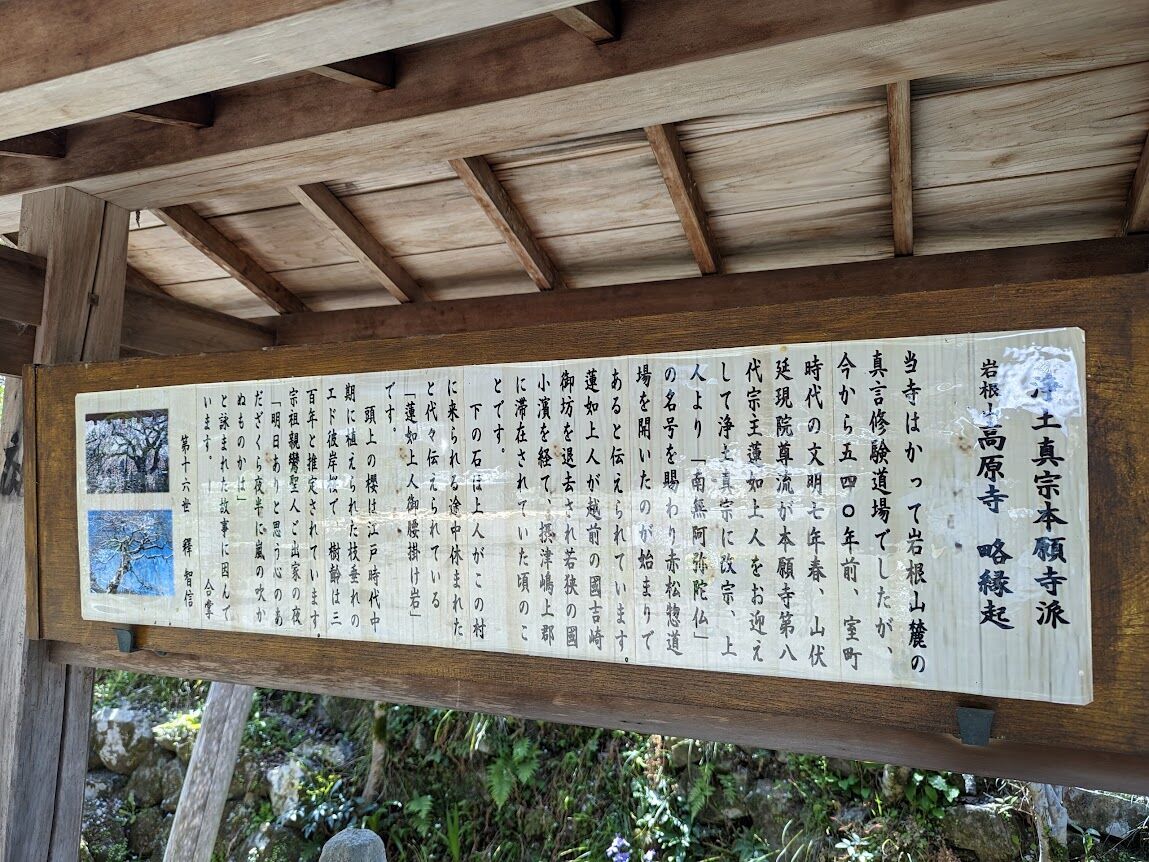 浄土真宗本願寺派
岩根山高原寺 略縁起
当寺はかって岩根山麓の
真言修験道場でしたが、
今から五四〇年前、室町
時代の文明七年春、山伏
延現院尊流が本願寺第八
代宗主蓮如上人をお迎え
して浄土真宗に改宗、上
人より「南無阿弥陀仏」
の名号を賜わり赤松惣道
場を開いたのが始まりで
あると伝えられています。
蓮如上人が越前の國吉崎
御坊を退去され若狭の國
小濱を経て、摂津嶋上郡
に滞在されていた頃のこ
とです。
下の石は上人がこの村
に来られる途中休まれた
と代々伝えられている
「蓮如上人御腰掛け岩」
です。
頭上の櫻は江戸時代中
期に植えられた枝垂れの
エド彼岸桜で、樹齢は三
百年と推定されています。
宗祖親鸞聖人ご出家の夜
「明日ありと思う心のあ
だざくら夜半に嵐の吹か
ぬものかは」
と詠まれた故事に因んで
います。 合掌
第十六世 釋 智信